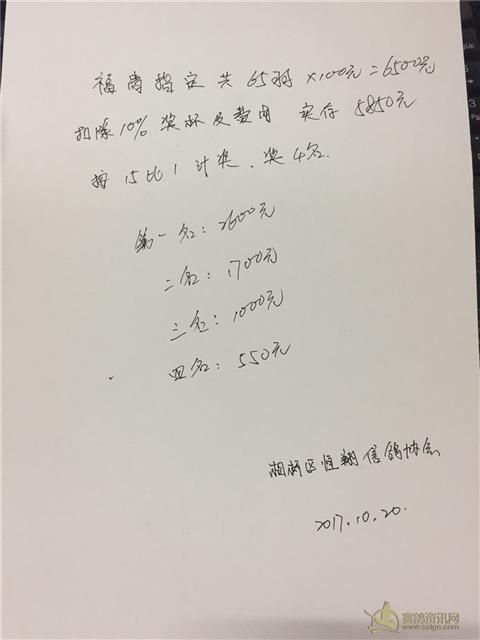 福肯指定共65羽×100元=6500元
扣除10%奖杯及费用 实存5850元
按15比1计奖.奖4名.
第一名:2600元
二名:1700元
三名:1000元
四名:550元
湘桥区恒翔信鸽协会
2017.10.20.
赛鸽资讯网
www.saige.com